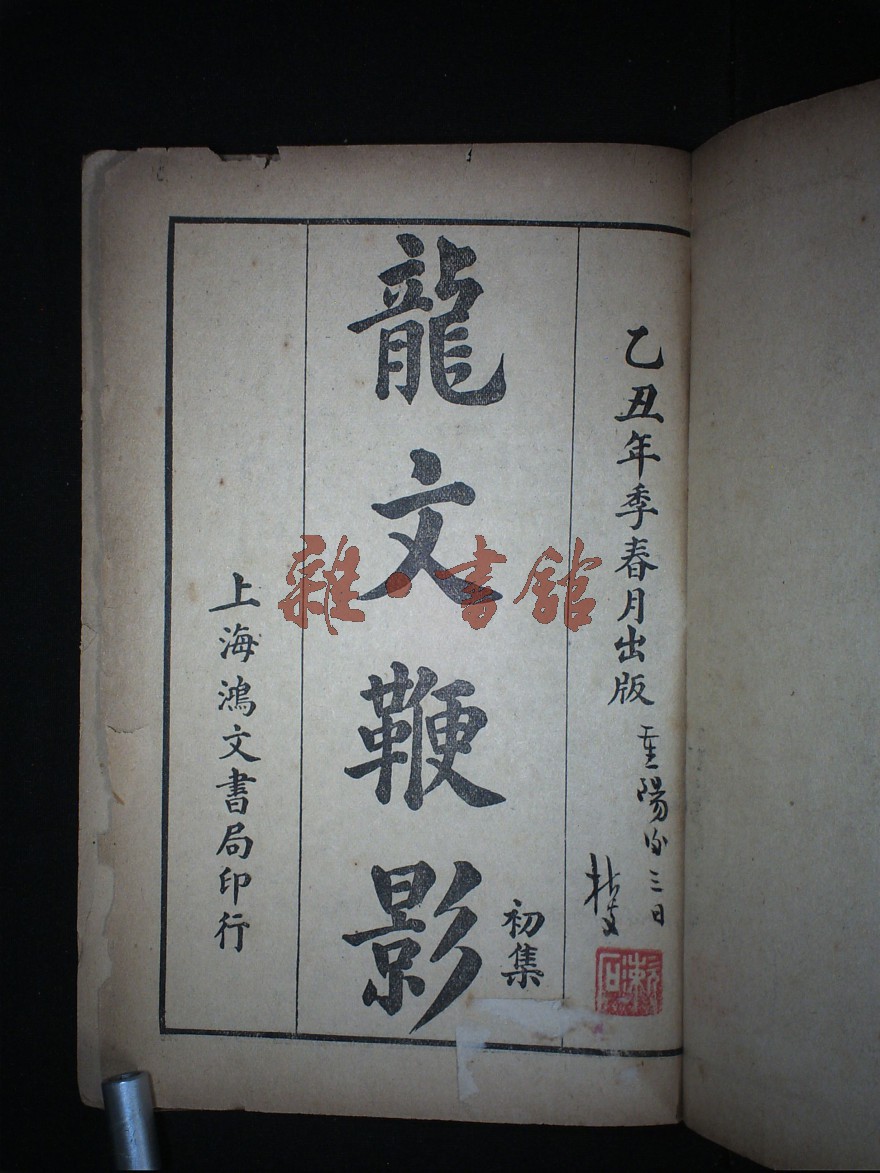 乙丑年季春月出版
重陽後三日
龍文鞭影
初集
上海鴻文書局印行
雜·書館